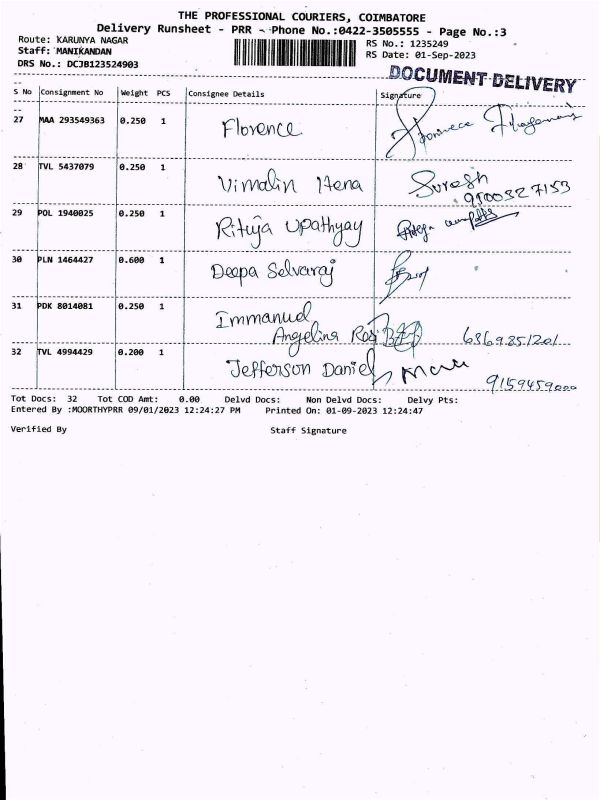 THE PROFESSIONAL COURIERS, COIMBATORE
Delivery Runsheet - PRR - Phone No.:0422-3505555 - Page No.:3
Route: KARUNYA NAGAR RS No.: 1235249
Staff: MANIKANDAN RS Date: 01-Sep-2023
DRS No.: DCJB123524903
DOCUMENT DELIVERY
S No Consignment No Weight PCS Consignee Details Signature
27 MAA 293549363 0.250 1 Florence
28 TVL 5437079 0.250 1 Vimalin Hena Suresh
9500327153
29 POL 1940025 0.250 1 Rituja Upathyay
30 PLN 1464427 0.600 1 Deepa Selvaraj
31 PDK 8014081 0.250 1 Immanuel
Angelina Rosi 6369851201
32 TVL 4994429 0.200 1 Jefferson Daniel
Tot Docs: 32 Tot COD Amt: 0.00 Delvd Docs: Non Delvd Docs: Delvy Pts:
Entered By :MOORTHYPRR 09/01/2023 12:24:27 PM Printed On: 01-09-2023 12:24:47
Verified By Staff Signature